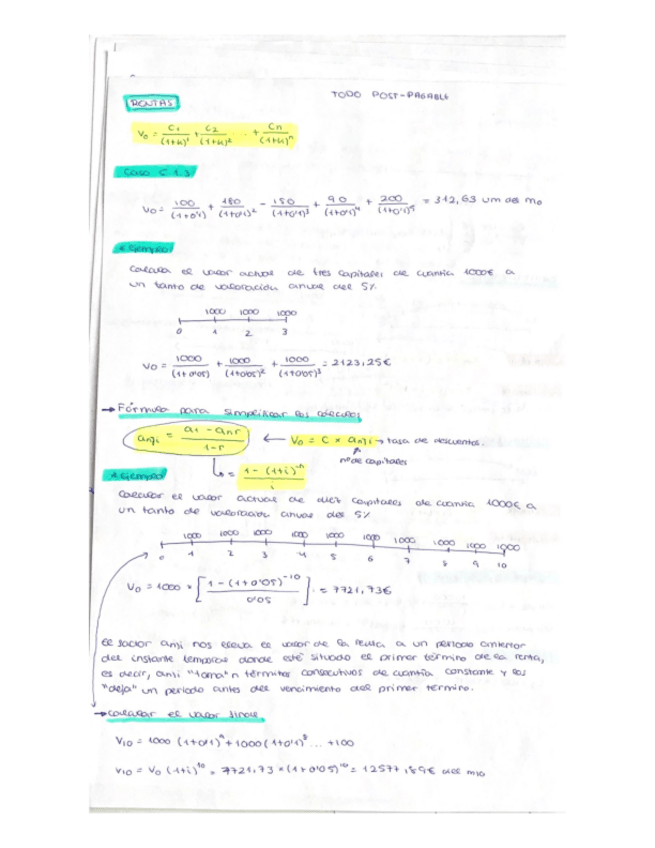 TODO POST-PAGABLE
RENTAS
V₀ = C₁/(1+k)¹ + C₂/(1+k)² ... + Cn/(1+k)ⁿ
Caso C.1.3
V₀ = 100/(1+0'1) + 180/(1+0'1)² - 150/(1+0'1)³ + 90/(1+0'1)⁴ + 200/(1+0'1)⁵ = 312,63 um de m₀
Ejemplo
Calcula el valor actual de tres capitales de cuantía 1000€ a
un tanto de valoración anual del 5%
1000 1000 1000
0 1 2 3
V₀ = 1000/(1+0'05) + 1000/(1+0'05)² + 1000/(1+0'05)³ = 2723,25€
→ Fórmula para simplificar los cálculos
an¬i = a₁ - an·r / 1-r ← V₀ = C × an¬i → tasa de descuentos.
nº de capitales
↳ = 1 - (1+i)⁻ⁿ / i
Ejemplo
Calcular el valor actual de diez capitales de cuantía 1000€ a
un tanto de valoración anual del 5%
1000 1000 1000 1000 1000 1000 1000 1000 1000 1000
0 1 2 3 4 5 6 7 8 9 10
V₀ = 1000 × [1 - (1+0'05)⁻¹⁰ / 0'05] = 7721,73€
El factor an¬i nos lleva el valor de la renta a un período anterior
del instante temporal donde esté situado el primer término de la renta,
es decir, an¬i "toma" n términos consecutivos de cuantía constante y los
"deja" un período antes del vencimiento del primer término.
→ Calcular el valor final
V₁₀ = 1000 (1+0'1)⁹ + 1000 (1+0'1)⁸ ... + 100
V₁₀ = V₀ (1+i)¹⁰ = 7721,73 × (1+0'05)¹⁰ = 12577,89€ del m₁₀